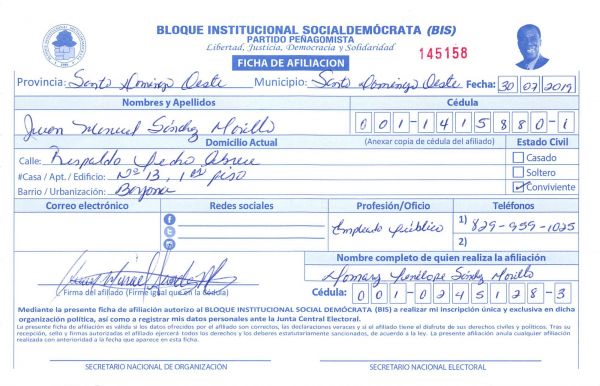 BLOQUE INSTITUCIONAL SOCIALDEMÓCRATA (BIS)
PARTIDO PEÑAGOMISTA
Libertad, Justicia, Democracia y Solidaridad
FICHA DE AFILIACION
145158
Provincia: Santo Domingo Oeste Municipio: Santo Domingo Oeste Fecha: 30 07 2019
Nombres y Apellidos Cédula
Juan Manuel Sánchez Morillo 001-1415880-1
Domicilio Actual (Anexar copia de cédula del afiliado) Estado Civil
Calle: Respaldo Pedro Abreu Casado
#Casa / Apt. / Edificio: Nº 13, 1er piso Soltero
Barrio / Urbanización: Bayona Conviviente
Correo electrónico Redes sociales Profesión/Oficio Teléfonos
Empleado público 1) 829-959-1025
2)
Nombre completo de quien realiza la afiliación
Penélope Sánchez Morillo
Firma del afiliado (Firme igual que en la cédula) Cédula: 001-0245128-3
Mediante la presente ficha de afiliación autorizo al BLOQUE INSTITUCIONAL SOCIAL DEMÓCRATA (BIS) a realizar mi inscripción única y exclusiva en dicha
organización política, así como a registrar mis datos personales ante la Junta Central Electoral.
La presente ficha de afiliación es válida si los datos ofrecidos por el afiliado son correctos, las declaraciones veraces y si el afiliado tiene el disfrute de sus derechos civiles y políticos. Tras su
recepción, sello y firmas autorizadas el afiliado ejercerá todos los derechos y los deberes estatutariamente sancionados, de acuerdo a la ley. La presente afiliación anula cualquier afiliación
realizada con anterioridad a la fecha que aparece en esta ficha.
SECRETARIO NACIONAL DE ORGANIZACIÓN SECRETARIO NACIONAL ELECTORAL